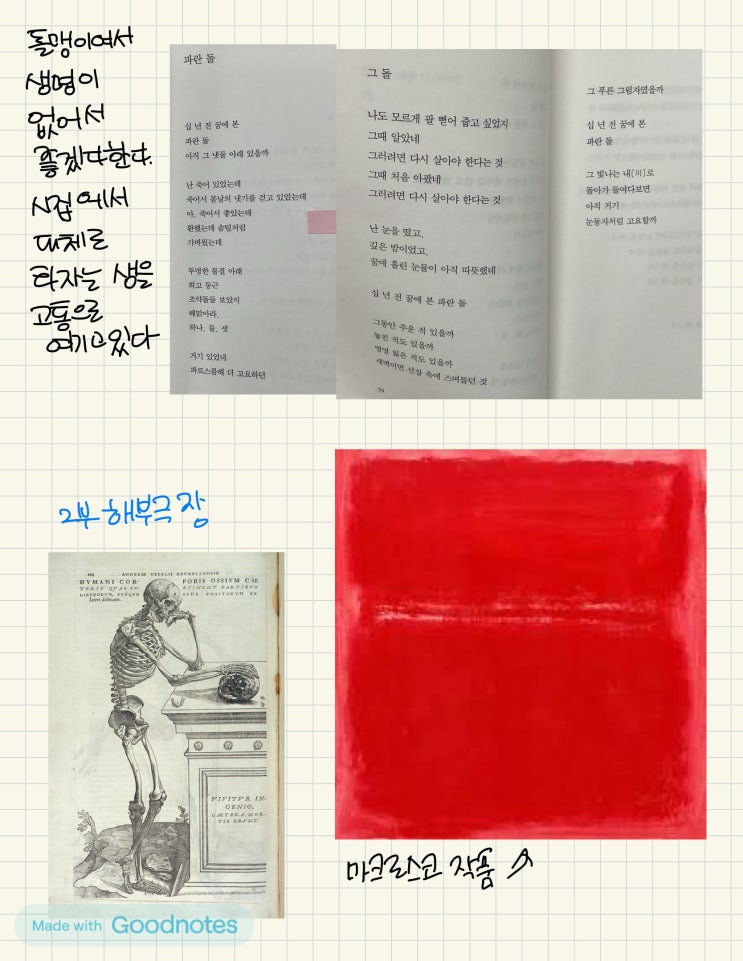 돌맹이여서
생명이
없어서
좋겠다한다.
시집에서
대체로
타자는 생을
고통으로
여기고있다
파란 돌
십 년 전 꿈에 본
파란 돌
아직 그 냇물 아래 있을까
난 죽어 있었는데
죽어서 봄날의 냇가를 걷고 있었는데
아, 죽어서 좋았는데
환했는데 솜털처럼
가벼웠는데
투명한 물결 아래
희고 둥근
조약돌들 보았지
해맑아라,
하나, 둘, 셋
거기 있었네
파르스름해 더 고요하던
그 돌
나도 모르게 팔 뻗어 줍고 싶었지
그때 알았네
그러려면 다시 살아야 한다는 것
그때 처음 아팠네
그러려면 다시 살아야 한다는 것
난 눈을 떴고,
깊은 밤이었고,
꿈에 흘린 눈물이 아직 따뜻했네
십 년 전 꿈에 본 파란 돌
그동안 주운 적 있을까
놓친 적도 있을까
영영 잃은 적도 있을까
새벽이면 선잠 속에 스며들던 것
54
그 푸른 그림자였을까
십 년 전 꿈에 본
파란 돌
그 빛나는 내[川]로
돌아가 들여다보면
아직 거기
눈동자처럼 고요할까
2부 해부극장
164 ANDREAE VESALII BRVXELLENSIS
HVMANI COR- PORIS OSSIVM CAE
VIVITVR IN-
GENIO,
CAETERA MOR-
TIS ERVNT.
마크로스코 작품
Made with Goodnotes